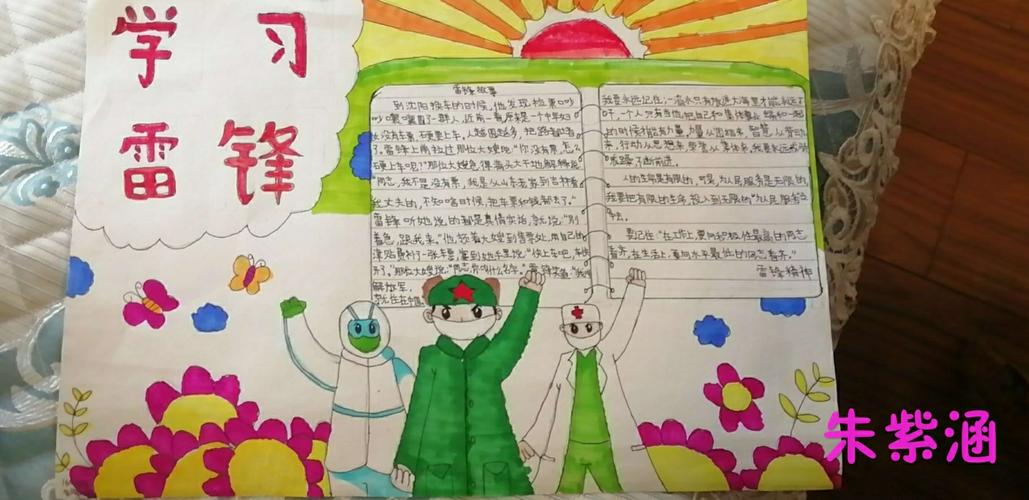 学习
雷锋
雷锋故事
到沈阳换车的时候,他发现检票口吵
吵嚷嚷围了一群人,近前一看原来是一个中年妇
女没有车票,硬要上车,人越围越多,把路都堵
了。雷锋上前拉住那位大嫂说:“你没有票,怎么
硬上车呢?”那位大嫂急得满头大汗地解释说
“同志,我不是没有票,我是从山东老家到吉林看
我丈夫的,不知啥时候,把车票和钱都丢了。”
雷锋听她说的都是真情实话,就说:“别
着急,跟我来。”他领着大嫂到售票处,用自己的
津贴费补了一张车票,塞到她手里说:“快上车吧,车快
开了。”那位大嫂说:“同志,你叫什么名字,雷锋笑道:“我叫
解放军,
就住在中国。
我要永远记住:一滴水只有放进大海里才能永远不
干,一个人只有当他把自己和集体事业融和一起
的时候才能有力量,力量从团结来,智慧从劳动
来,行动从思想来,荣誉从集体来,我要永远
戒骄了断前进。
人的生命是有限的,可是,为人民服务是无限的,
我要把有限的生命,投入到无限的“为人民服务之
中去。
要记住:“在工作上,要向积极性最高的同志
看齐,在生活上,要向水平最低的同志看齐。”
雷锋精神
朱紫涵